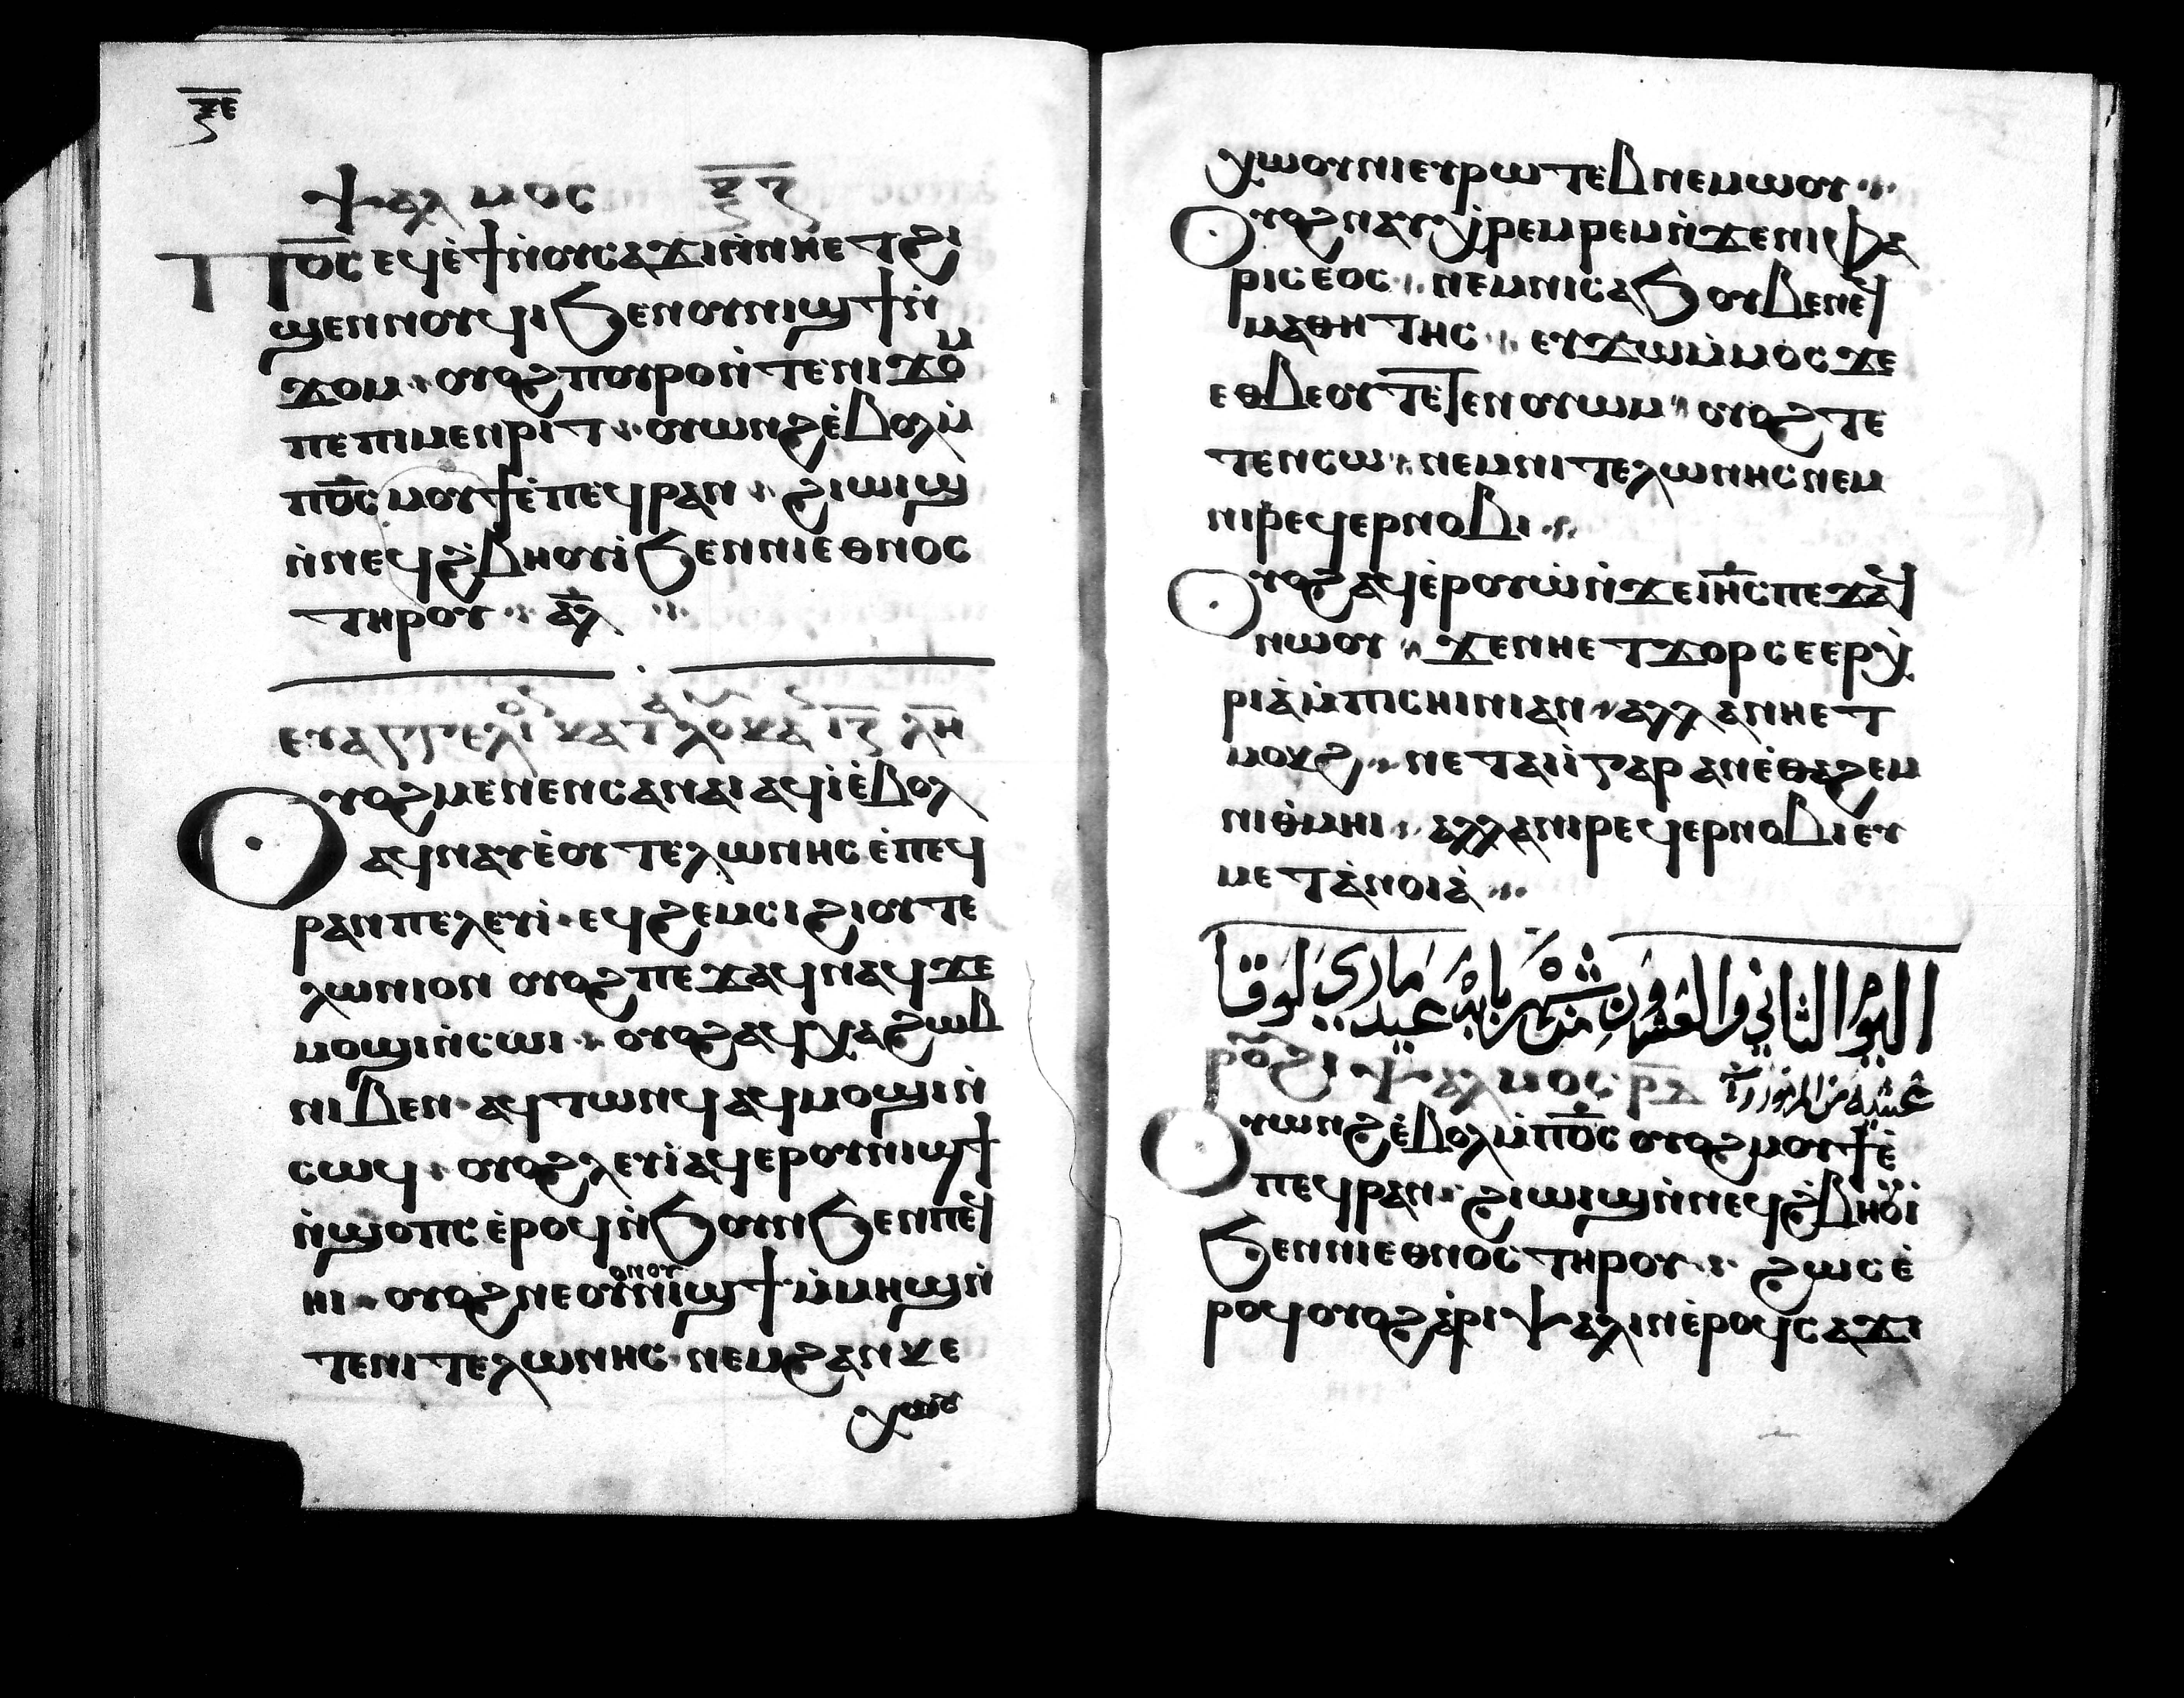 ⲝⲉ
ⲯⲁⲗⲙⲟⲥ ⲝⲍ
Ⲡⲟ̅ⲥ̅ ⲉϥⲉ̀ϯⲛ̀ⲟⲩⲥⲁϫⲓⲛ̀ⲛⲏⲉⲧϩⲓ
ϣⲉⲛⲛⲟⲩϥⲓϧⲉⲛⲟⲩⲛⲓϣϯⲛ̀
ϫⲟⲙ ⲟⲩⲟϩⲡⲟⲩⲣⲟⲛ̀ⲧⲉⲛⲓϫⲟⲙ
ⲡⲉⲡⲓⲙⲉⲛⲣⲓⲧ ⲟⲩⲱⲛϩⲉ̀ⲃⲟⲗⲙ̀
ⲡⲟ̅ⲥ̅ ⲙⲟⲩϯⲉ̀ⲡⲉϥⲣⲁⲛ ϩⲓⲱⲓϣ
ⲛ̀ⲛⲉϥϩ̀ⲃⲏⲟⲩⲓ̀ϧⲉⲛⲛⲓⲉⲑⲛⲟⲥ
ⲧⲏⲣⲟⲩ ⲁⲗ
ⲉⲩⲁⲅⲅⲉⲗⲓⲟⲛ ⲕⲁⲧⲁ ⲗⲟⲩⲕⲁⲛ ⲓⲍ ⲗⲏ
Ⲟⲩⲟϩⲙⲉⲛⲉⲛⲥⲁⲛⲁⲓ ⲁϥⲓ̀ⲉ̀ⲃⲟⲗ
ⲁϥⲛⲁⲩⲉ̀ⲟⲩⲧⲉⲗⲱⲛⲏⲥ ⲉ̀ⲡⲉϥ
ⲣⲁⲛⲡⲉⲗⲉⲩⲓ̀ ⲉϥϩⲉⲙⲥⲓ ϩⲓⲟⲩⲧⲉ
ⲗⲱⲛⲓⲟⲛ ⲟⲩⲟϩ ⲡⲉϫⲁϥⲛⲁϥϫⲉ
ⲙⲟϣⲓⲛ̀ⲥⲱⲓ ⲟⲩⲟϩ ⲁϥⲭⲁϩⲱⲃ
ⲛⲓⲃⲉⲛ ⲁϥⲧⲱⲛϥ ⲁϥⲙⲟϣⲓⲛ̀
ⲥⲱϥ ⲟⲩⲟϩⲗⲉⲩⲓ̀ ⲁϥⲉⲣⲟⲩⲛⲓϣϯ
ⲛ̀ϣⲟⲡⲥ ⲉ̀ⲣⲟϥ ⲛ̀ϧⲟⲩⲛϧⲉⲛⲡⲉϥ
ⲏⲓ ⲟⲩⲟϩ ⲛⲉⲟⲩⲟⲛⲟⲩⲛⲓϣϯⲙ̀ⲙⲏϣⲛ̀
ⲧⲉⲛⲓⲧⲉⲗⲱⲛⲏⲥ ⲛⲉⲙϩⲁⲛⲕⲉ
ⲭⲱⲟⲩ
ⲭⲱⲟⲩⲛⲓⲉⲩⲣⲱⲧⲉⲃⲛⲉⲙⲱⲟⲩ
Ⲟⲩⲟϩ ⲛⲁⲩⲭⲣⲉⲙⲣⲉⲙⲛ̀ϫⲉⲛⲓⲫⲁ
ⲣⲓⲥⲉⲟⲥ ⲛⲉⲙⲛⲓⲥⲁϧ ⲟⲩⲃⲉⲛⲉϥ
ⲙⲁⲑⲏⲧⲏⲥ ⲉⲩϫⲱⲙ̀ⲙⲟⲥϫⲉ
ⲉⲑⲃⲉⲟⲩⲧⲉⲧⲉⲛⲟⲩⲱⲙ ⲟⲩⲟϩ ⲧⲉ
ⲧⲉⲛⲥⲱ ⲛⲉⲙⲛⲓⲧⲉⲗⲱⲛⲏⲥ ⲛⲉⲙ
ⲛⲓⲣⲉϥⲉⲣⲛⲟⲃⲓ
Ⲟⲩⲟϩ ⲁϥⲉ̀ⲣⲟⲩⲱ̀ⲛ̀ϫⲉⲓⲏ̅ⲥ̅ ⲡⲉϫⲁϥ
ⲛⲱⲟⲩ ϫⲉⲛⲏⲉⲧϫⲟⲣ ⲥⲉⲉⲣⲭ̀
ⲣⲓⲁ̀ⲙ̀ⲡⲓⲥⲏⲓⲛⲓⲁⲛ ⲁⲗⲗⲁⲛⲏⲉⲧ
ⲙⲟⲕϩ ⲛⲉⲧⲁⲓⲓ̀ⲅⲁⲣ ⲁⲛⲉ̀ⲑⲁϩⲉⲙ
ⲛⲓⲑ̀ⲙⲏⲓ ⲁⲗⲗⲁⲛⲓⲣⲉϥⲉⲣⲛⲟⲃⲓ ⲉⲩ
ⲙⲉⲧⲁ̀ⲛⲟⲓⲁ̀
اليوم الثاني والعشرون من شهر بابه عيد ماري لوقا
ⲣⲟⲩϩⲓ ⲯⲁⲗⲙⲟⲥ ⲣⲇ عشية من المزمور
Ⲟⲩⲱⲛϩⲉ̀ⲃⲟⲗⲙ̀ⲡⲟ̅ⲥ̅ ⲟⲩⲟϩ ⲙⲟⲩϯⲉ̀
ⲡⲉϥⲣⲁⲛ ϩⲓⲱⲓϣⲛ̀ⲛⲉϥϩ̀ⲃⲏⲟⲩⲓ̀
ϧⲉⲛⲛⲓⲉⲑⲛⲟⲥ ⲧⲏⲣⲟⲩ ϩⲱⲥ ⲉ̀
ⲣⲟϥ ⲟⲩⲟϩ ⲁ̀ⲣⲓⲯⲁⲗⲓⲛⲉ̀ⲣⲟϥ ⲥⲁϫⲓ